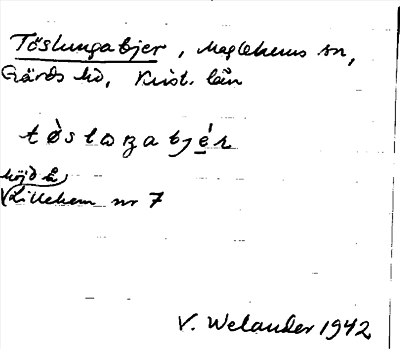 Töslungabjer, Maglehems sn,
Gärds hd, Krist. län
tøslaŋabjér
höjd å
Lillehem nr 7
V. Welander 1942